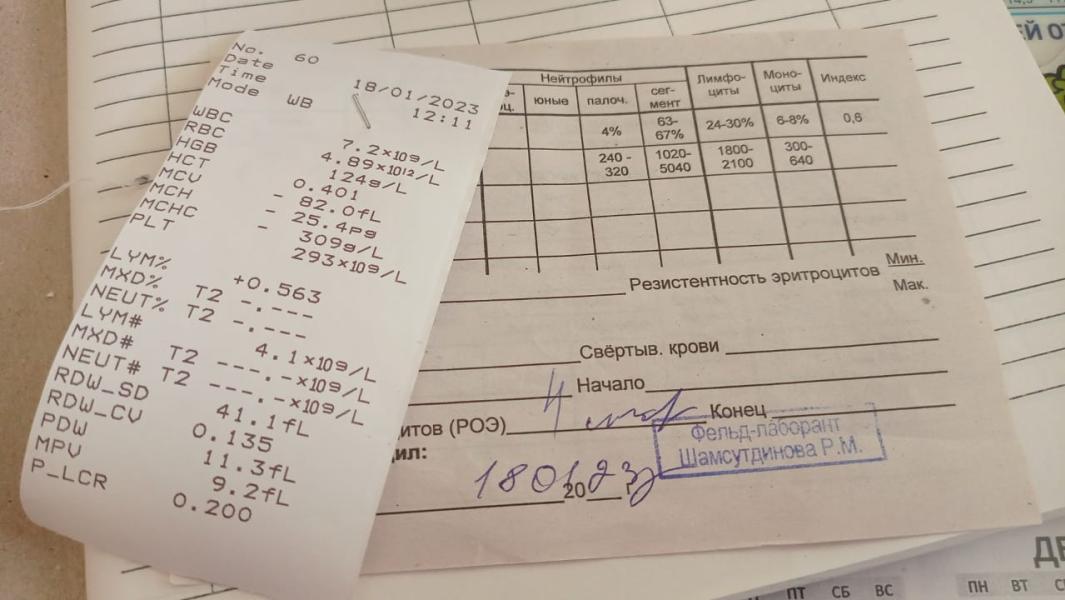 No. 60
Date 18/01/2023
Time 12:11
Mode WB
WBC 7.2×10⁹/L
RBC 4.89×10¹²/L
HGB 124g/L
HCT 0.401
MCV - 82.0fL
MCH - 25.4pg
MCHC - 309g/L
PLT 293×10⁹/L
LYM% +0.563
MXD% T2 -.---
NEUT% T2 -.---
LYM# 4.1×10⁹/L
MXD# T2 ---.-×10⁹/L
NEUT# T2 ---.-×10⁹/L
RDW_SD 41.1fL
RDW_CV 0.135
PDW 11.3fL
MPV 9.2fL
P_LCR 0.200
Нейтрофилы
оц. юные палоч. сег-
мент
Лимфо-
циты
Моно-
циты
Индекс
4% 63-
67% 24-30% 6-8% 0,6
240 -
320 1020-
5040 1800-
2100 300-
640
Резистентность эритроцитов Мин.
Мак.
Свёртыв. крови
Начало
итов (РОЭ) 4 Конец
ил:
Фельд-лаборант
Шамсутдинова Р.М.
18 01 2023 г
ЕЙ
ПТ СБ ВС ПН ВТ
ДЕ